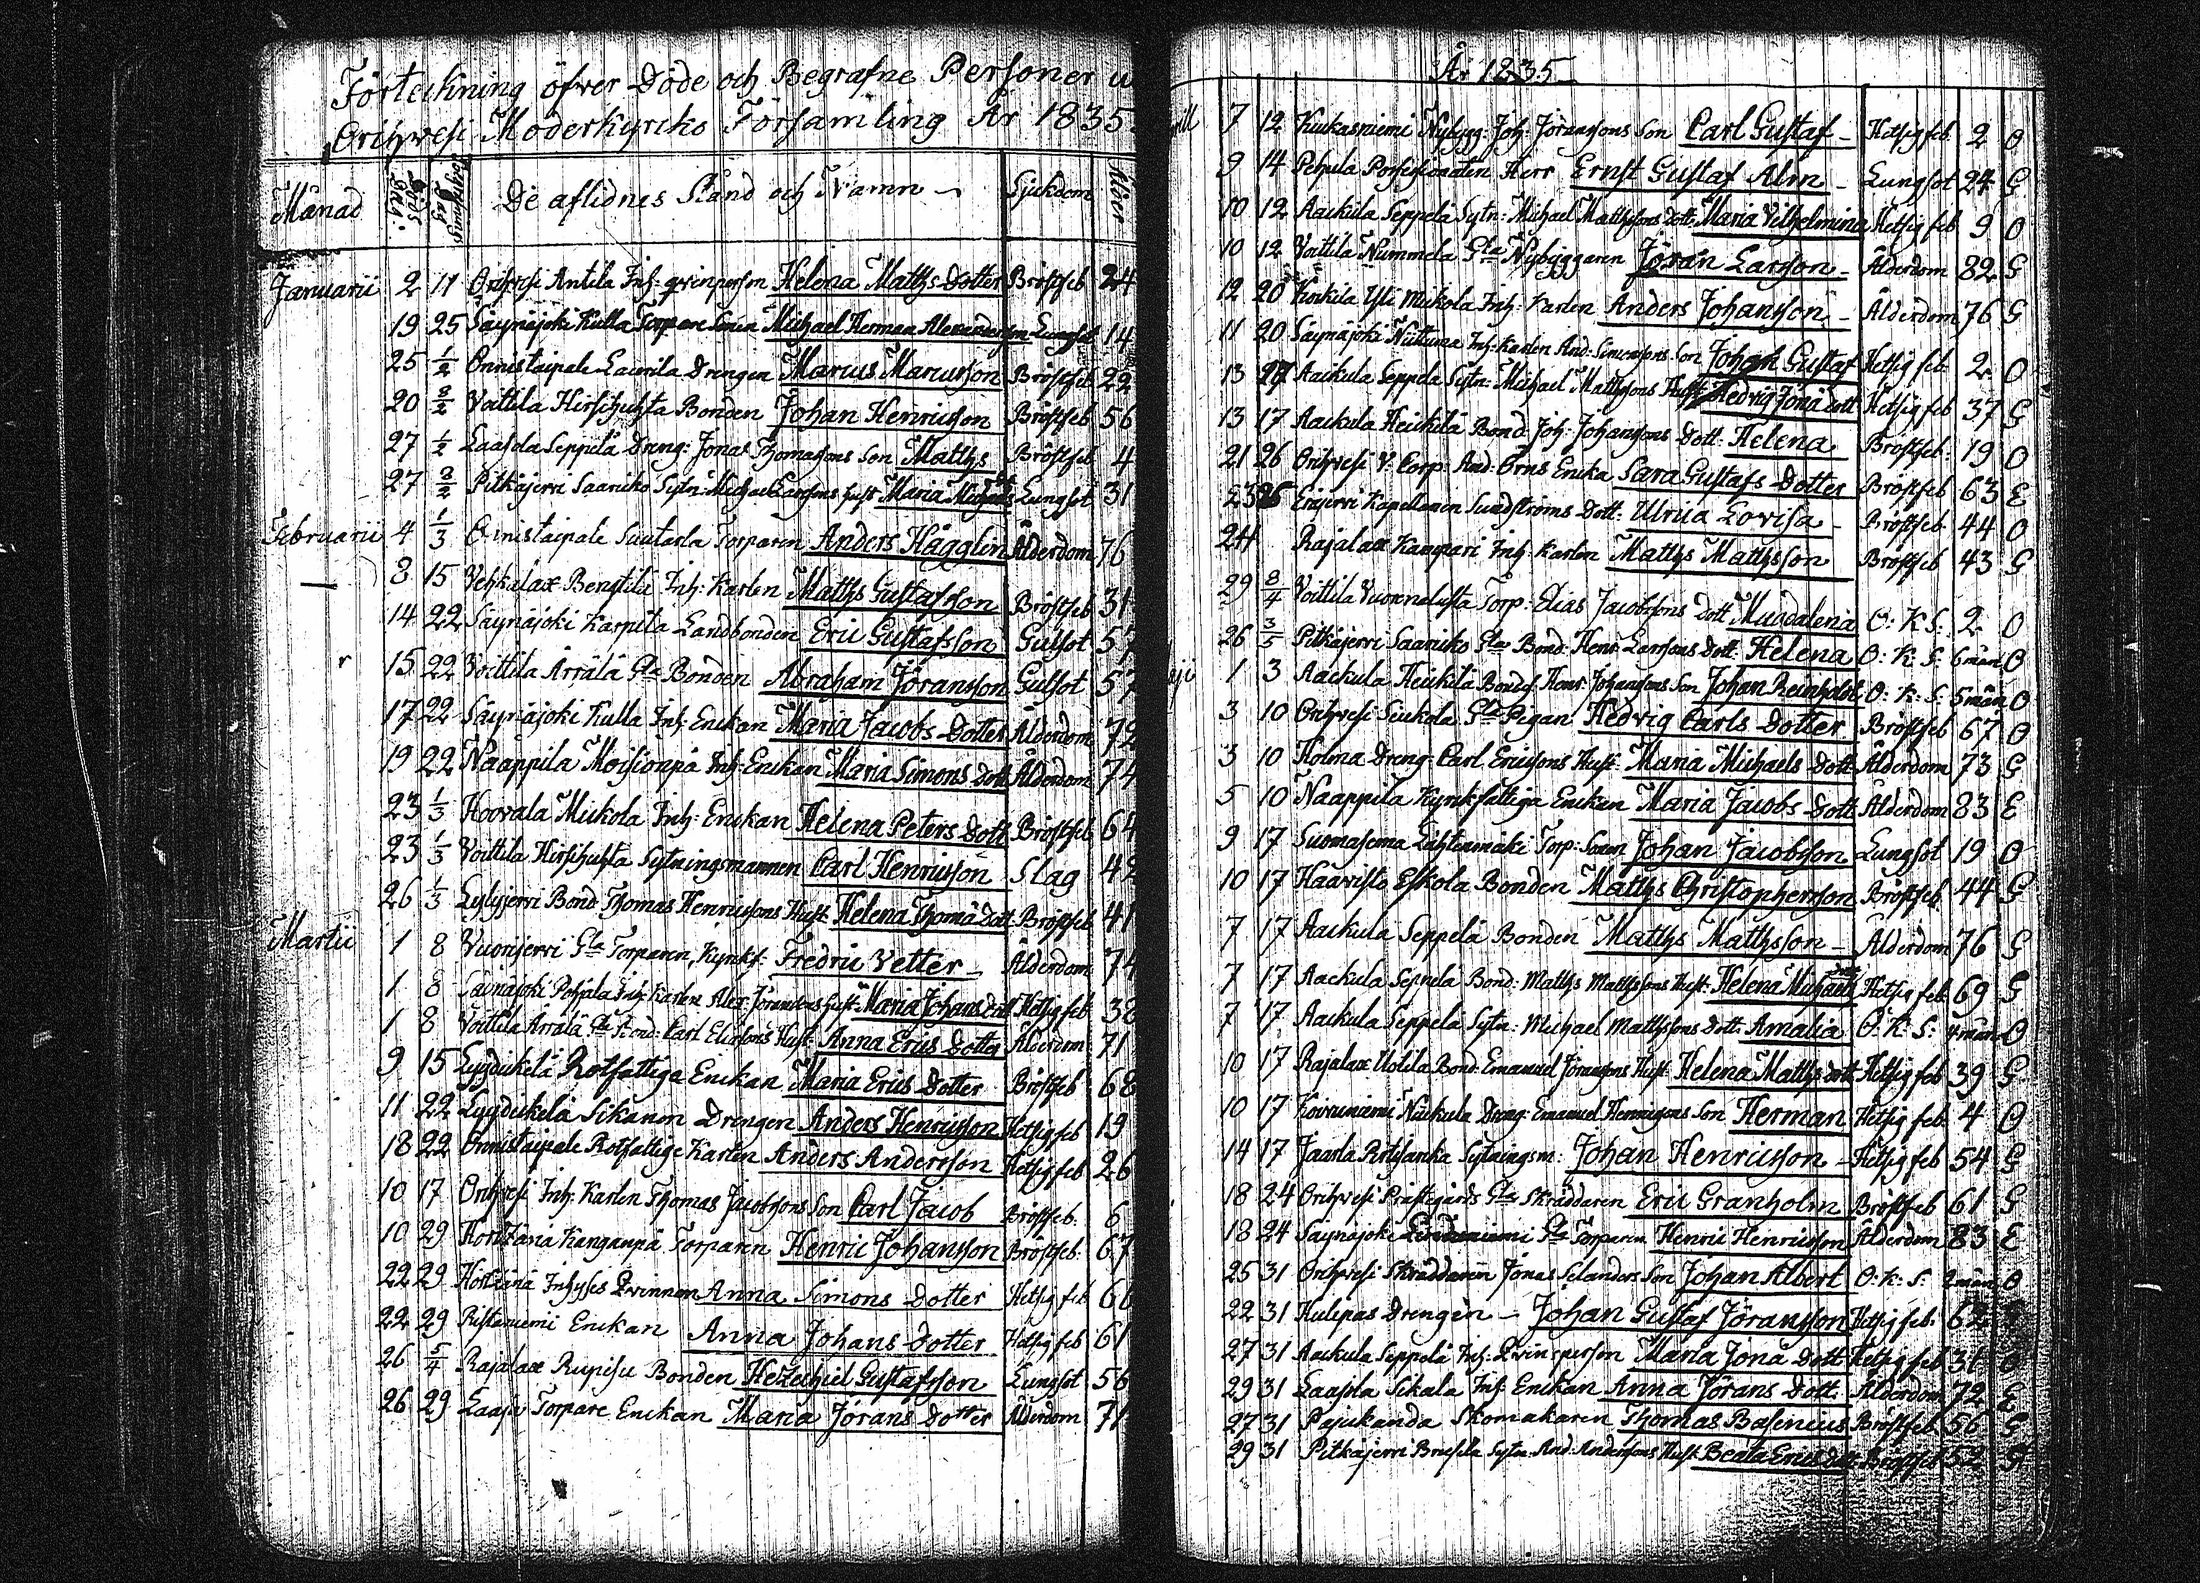 Förteckning öfver Döde och Begrafne Personer u
Orihvesi Moderkyrko Församling År 1835.
Månad Döds Dag. Begrafnings Dag De aflidnes Stånd och Namn Sjukdom Ålder
Januarii 2 11 Orihvesi Antila Inh: qvinperson Helena Matths Dotter Bröstfeb 24
19 25 Säynäjoki Kulla Torpare Sonen Michael Herman Alexandersson Lungsot 14
25 1/2 Onnistaipale Laurila Drengen Marcus Marcusson Bröstfeb 22
20 8/2 Voitila Hirsihuhta Bonden Johan Henricsson Bröstfeb 56
27 1/2 Laasola Seppelä Dreng: Jonas Thomassons Son Matths Bröstfeb 4
27 8/2 Pitkäjervi Saariko Sytn: Michael Larssons Hust Maria Lungsot 31
Februarii 4 1/3 Onnistaipale Suutarla Torparen Anders Hägglin Ålderdom 76
8 15 Vehkalax Bengtilä Inh: Karlen Matths Gustafsson Bröstfeb 31
14 22 Säynäjoki Karpila Landbonden Eric Gustafsson Gulsot 57
15 22 Voittila Ärrälä Gla Bonden Abraham Jöransson Gulsot 57
17 22 Säynäjoki Kulla Inh Enckan Maria Jacobs Dotter Ålderdom 72
19 22 Naappila Moisionpä Inh Enckan Maria Simons Dott Ålderdom 74
23 1/3 Hoovala Muckola Inh: Enckan Helena Peters Dott Bröstfeb 64
23 1/3 Voittila Hirsihuhta Sytningsmannen Carl Henricsson Slag 42
26 1/3 Lylyjervi Bond Thomas Henricssons Hust: Helena Thomä Dot Bröstfeb 41
Martii 1 8 Vuorijervi Gla Torparen, Kyrkf: Fredric Vetter Ålderdom 74
1 8 Säynäjoki Pohjala Inh Karlen Alex: Jöranssons Hust Maria Johans Dott Hetsig feb 38
1 8 Voittila Ärrälä Gla Bond: Carl Ericssons Hust: Anna Erics Dotter Ålderdom 71
9 15 Lyydickelä Rotfattige Enckan Maria Erics Dotter Bröstfeb 68
11 22 Lyydickelä Sikanen Drengen Anders Henricsson Hetsig feb 19
18 22 Onnistaipale Rotfattige Karlen Anders Andersson Hetsig feb 26
10 17 Orihvesi Inh: Karlen Thomas Jacobssons Son Carl Jacob Bröstfeb. 6
10 29 Kanganpä Torparen Henric Johansson Bröstfeb: 67
22 29 Inhyses Qvinnan Anna Simons Dotter Hetsig feb 66
22 29 Ristaniemi Enckan Anna Johans Dotter Hetsig feb 61
26 5/4 Rajalax Rupisu Bonden Hezechiel Gustafsson Lungsot 56
26 29 Laasu Torpare Enckan Maria Jörans Dotter Ålderdom 71
År 1835
rill 7 12 Kuukasniemi Nybygg: Joh: Jöranssons Son Carl Gustaf Hetsig feb. 2 O
9 14 Pehula Possessionaten Herr Ernst Gustaf Alm Lungsot 24 G
10 12 Aackula Seppelä Sytn: Michael Matthssons Dott: Maria Vilhelmina Hetsig feb 9 O
10 12 Voittila Nummela Gla Nybyggaren Jöran Larsson Ålderdom 82 G
12 20 Yli Muckola Inh: Karlen Anders Johansson Ålderdom 76 G
11 20 Säynäjoki Niittuma Inh: Karlen And: Simonssons Son Johan Gustaf Hetsig feb: 2 O
13 17 Aackula Seppelä Sytn: Michael Matthssons Hust: Hedvig Jonä Dott Hetsig feb 37 G
13 17 Aackula Heickilä Bond Joh: Johanssons Dott: Helena Bröstfeb: 19 O
21 26 Orihvesi V: Corp: And: Örns Encka Sara Gustafs Dotter Bröstfeb 63 E
23 26 Eräjervi Kapellanen Sundströms Dott: Ulrica Lovisa Bröstfeb 44 O
24 Rajalax Kampari Inh: Karlen Matths Matthsson Bröstfeb 43 G
29 8/4 Voittila Vuorenalusta Torp: Elias Jacobssons Dott Magdalena O: K: S: 2 O
26 3/5 Pitkäjervi Saariko Gla Bond: Henr: Larssons Dott Helena O: K: S: 6 mån O
aji 1 3 Aackula Heickilä Bond: Henr: Johanssons Son Johan Reinhold O: K: S: 5 mån O
3 10 Orihvesi Siukola Gla Pigan Hedvig Carls Dotter Bröstfeb 67 O
3 10 Holma Dreng Carl Ericssons Hust: Maria Michaels Dott Ålderdom 73 G
5 10 Naappila Kyrkfattiga Enckan Maria Jacobs Dott Ålderdom 83 E
9 17 Suomasema Lähtenmäki Torp: Sonen Johan Jacobsson Lungsot 19 O
10 17 Haavisto Eskola Bonden Matths Christophersson Bröstfeb. 44 G
7 17 Aackula Seppelä Bonden Matths Matthsson Ålderdom 76 G
7 17 Aackula Seppelä Bond: Matths Matthssons Hust: Helena Michaels Dott Hetsig feb 69 G
7 17 Aackula Seppelä Sytn: Michael Matthssons Dott: Amalia O: K: S: 4 mån O
10 17 Rajalax Uotila Bond: Emanuel Jöranssons Hust: Helena Matths Dott Hetsig feb 39 G
10 17 Dreng: Emanuel Henricssons Son Herman Hetsig feb: 4 O
14 17 Jaarla Sytningsm: Johan Henricsson Hetsig feb 54 G
18 24 Orihvesi Prästegårds Gla Skräddaren Eric Granholm Bröstfeb 61 G
18 24 Säynäjoki Gla Torparen Henric Henricsson Ålderdom 83 E
25 31 Orihvesi Skräddaren Jonas Selanders Son Johan Albert O: K: S: 2 mån O
22 31 Hulepas Drengen Johan Gustaf Jöransson Hetsig feb. 62
27 31 Aackula Seppelä Inh: Qvinsperson Maria Jonä Dott Hetsig feb 31 O
29 31 Laasola Sikala Inh: Enckan Anna Jörans Dott Ålderdom 72 E
27 31 Pajukanda Skomakaren Thomas Basenius Bröstfeb 56 G
29 31 Pitkäjervi Sytn: And: Anderssons Hust: Beata Erics Dott Bröstfeb 52 G